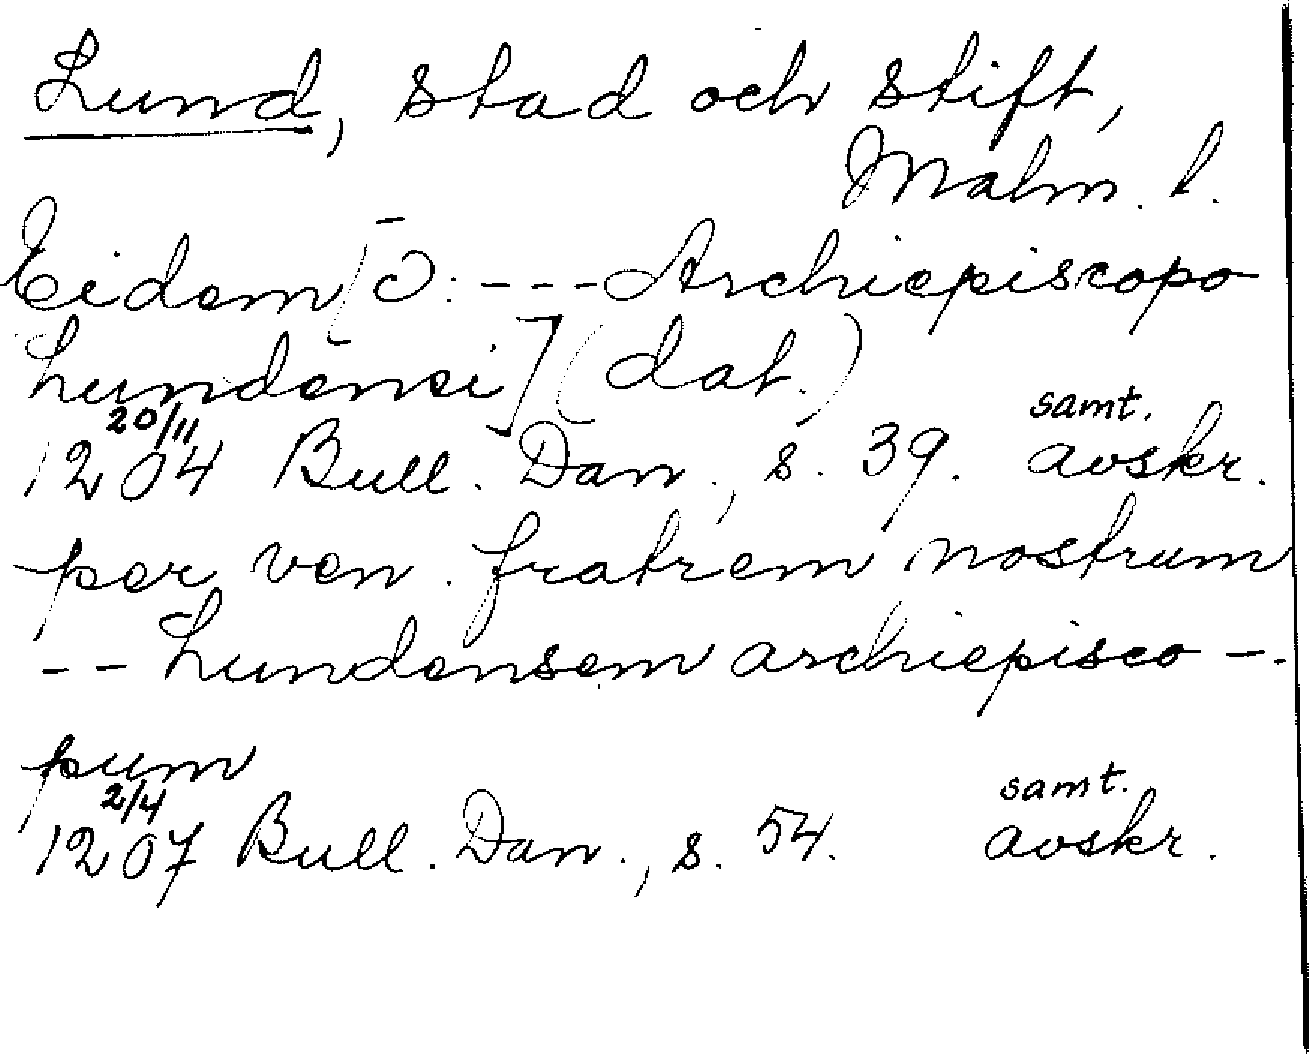 Lund, stad och stift,
Malm. l.
Eidem [ɔ: --- Archiepiscopo
Lundensi] (dat.)
20/11 samt.
1204 Bull. Dan., s. 39. avskr.
per ven. fratrem nostrum
-- Lundensem archiepisco-
pum
2/4 samt.
1207 Bull. Dan., s. 54. avskr.